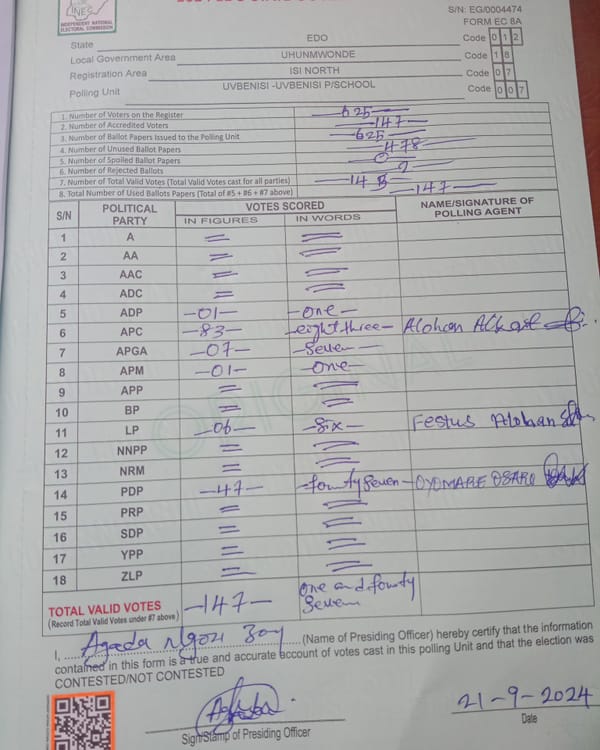 INEC
INDEPENDENT NATIONAL
ELECTORAL COMMISSION
S/N: EG/0004474
FORM EC 8A
State EDO Code 0 1 2
Local Government Area UHUNMWONDE Code 1 8
Registration Area ISI NORTH Code 0 7
Polling Unit UVBENISI -UVBENISI P/SCHOOL Code 0 0 7
1. Number of Voters on the Register 625
2. Number of Accredited Voters 147
3. Number of Ballot Papers Issued to the Polling Unit 625
4. Number of Unused Ballot Papers 478
5. Number of Spoiled Ballot Papers 0
6. Number of Rejected Ballots
7. Number of Total Valid Votes (Total Valid Votes cast for all parties)
8. Total Number of Used Ballots Papers (Total of #5 + #6 + #7 above) 147
S/N POLITICAL PARTY VOTES SCORED NAME/SIGNATURE OF POLLING AGENT
IN FIGURES IN WORDS
1 A = =
2 AA = =
3 AAC = =
4 ADC = =
5 ADP -01- -one-
6 APC -83- -eight three- Alohan
7 APGA -07- -Seven-
8 APM -01- -one-
9 APP = =
10 BP = =
11 LP -06- -Six- Festus Alohan
12 NNPP = =
13 NRM = =
14 PDP -47- -fourty Seven- OYOMARE OSARO
15 PRP = =
16 SDP = =
17 YPP = =
18 ZLP = =
ORIGINAL
TOTAL VALID VOTES -147- one and fourty
(Record Total Valid Votes under #7 above) Seven
I, Agada Ngozi (Name of Presiding Officer) hereby certify that the information
contained in this form is a true and accurate account of votes cast in this polling Unit and that the election was
CONTESTED/NOT CONTESTED
21-9-2024
Sign/Stamp of Presiding Officer Date